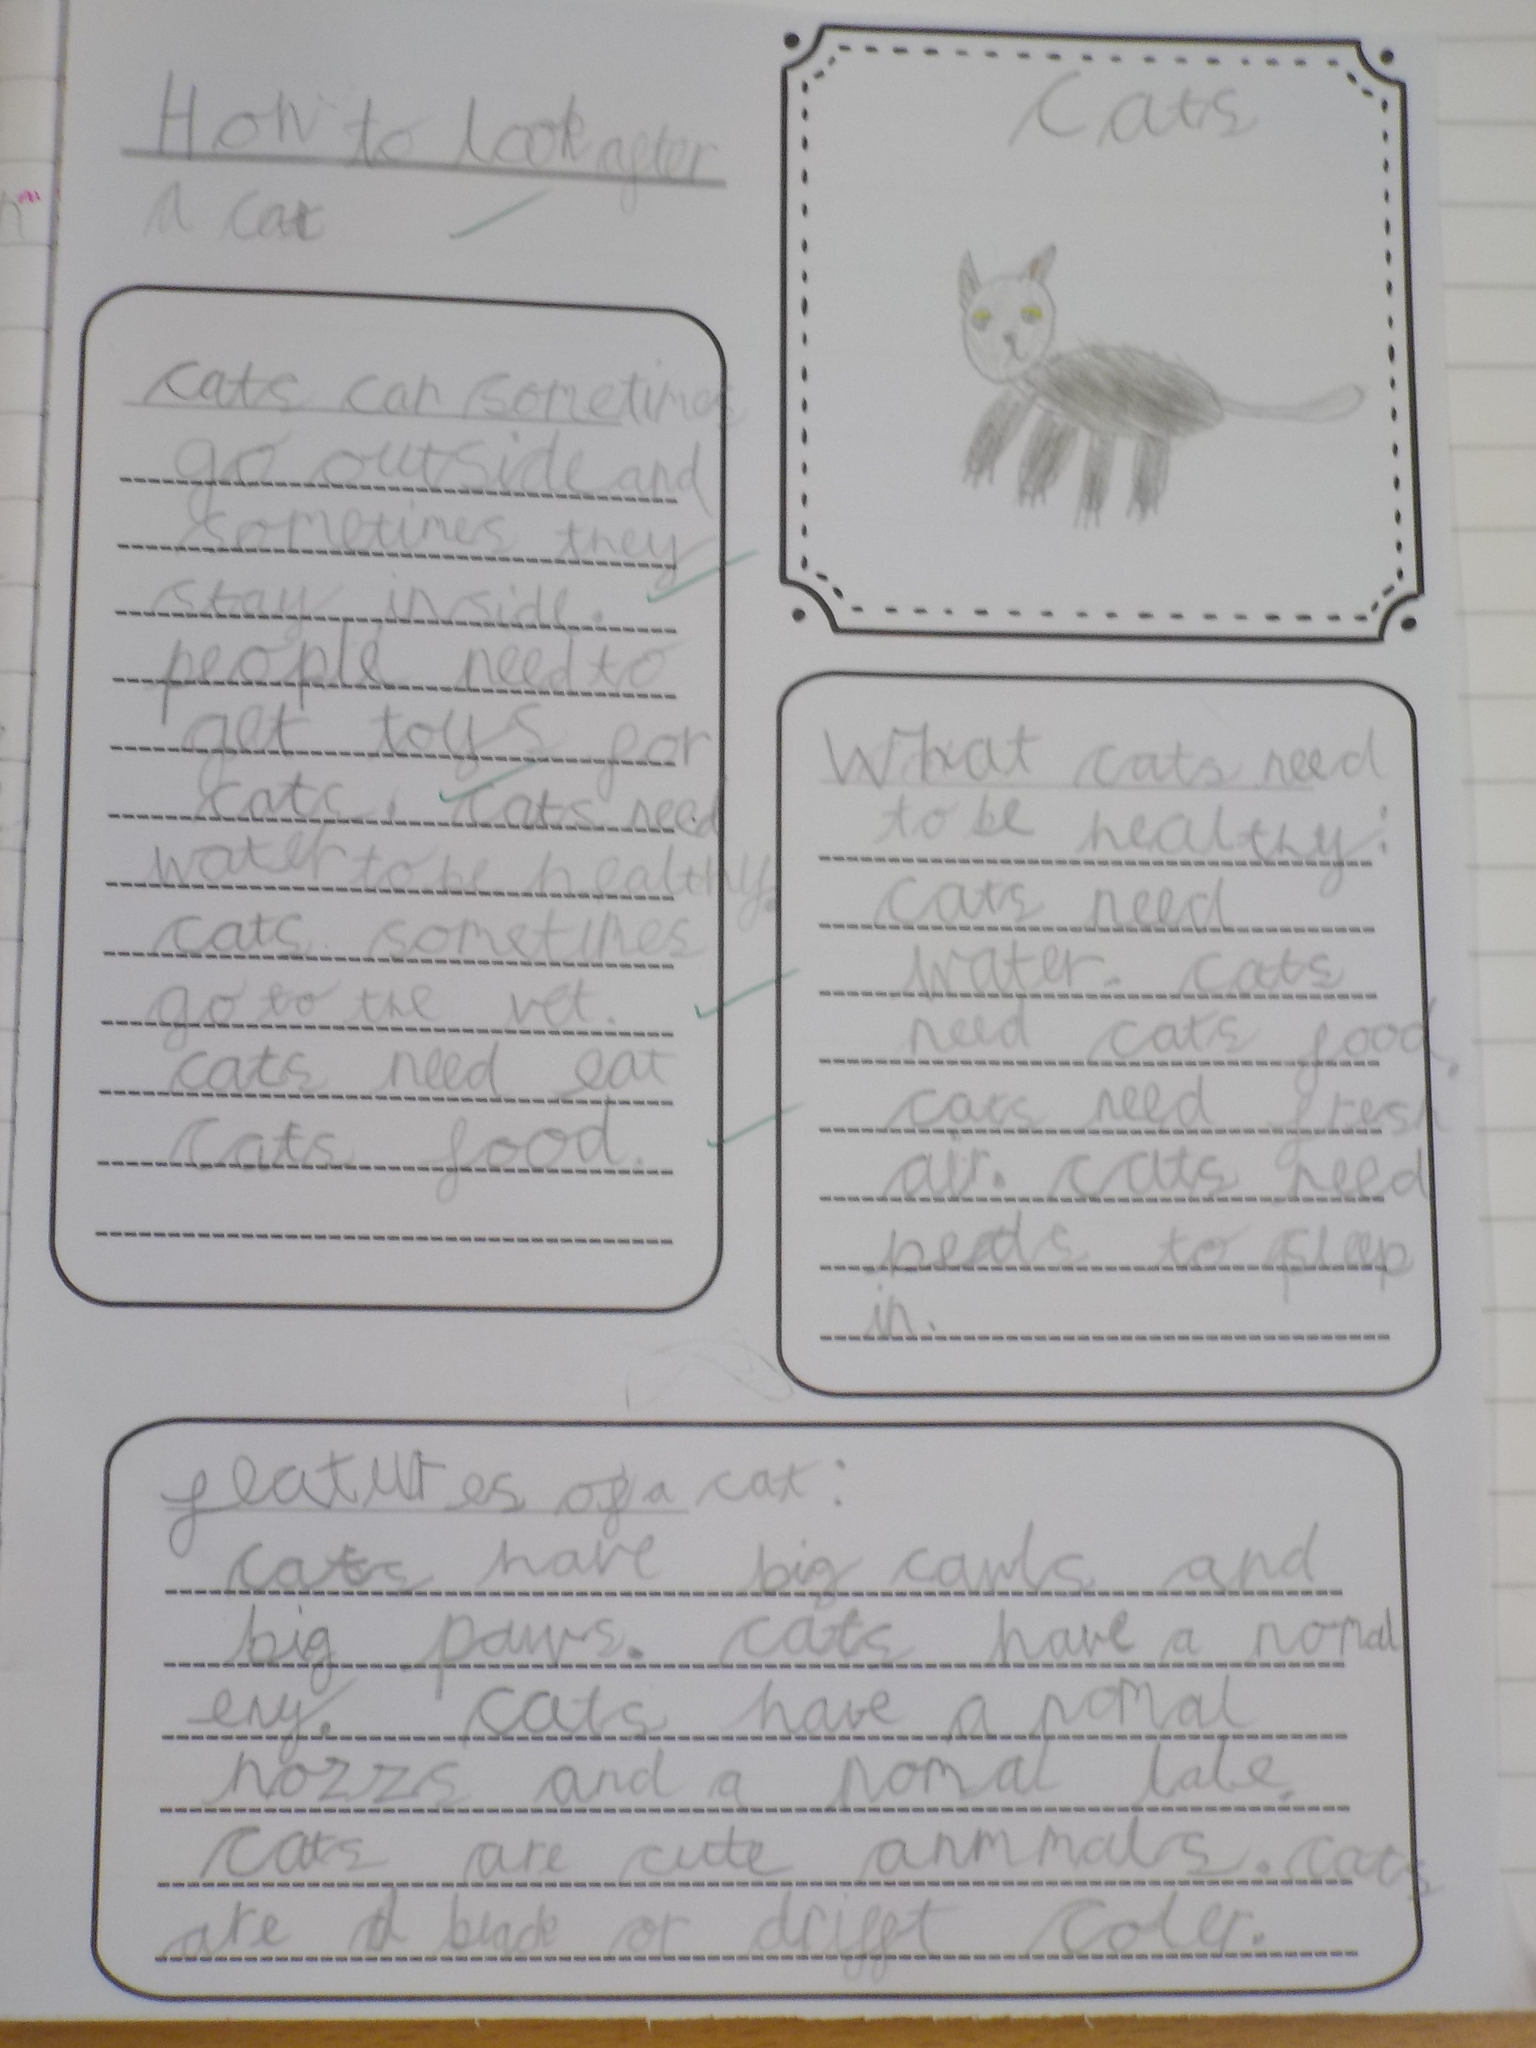 How to look after
a cat
cats can sometimes
go outside and
sometimes they
stay inside.
people need to
get toys for
cats. cats need
water to be healthy.
cats sometimes
go to the vet.
cats need eat
cats food.
Cats
What cats need
to be healthy:
cats need
water. cats
need cats food.
cats need fresh
air. cats need
beads to sleep
in.
features of a cat:
cats have big cawls and
big paws. cats have a nomal
eny. cats have a nomal
nozzs and a nomal tale.
cats are cute anmmals. cats
are black or drifft coler.